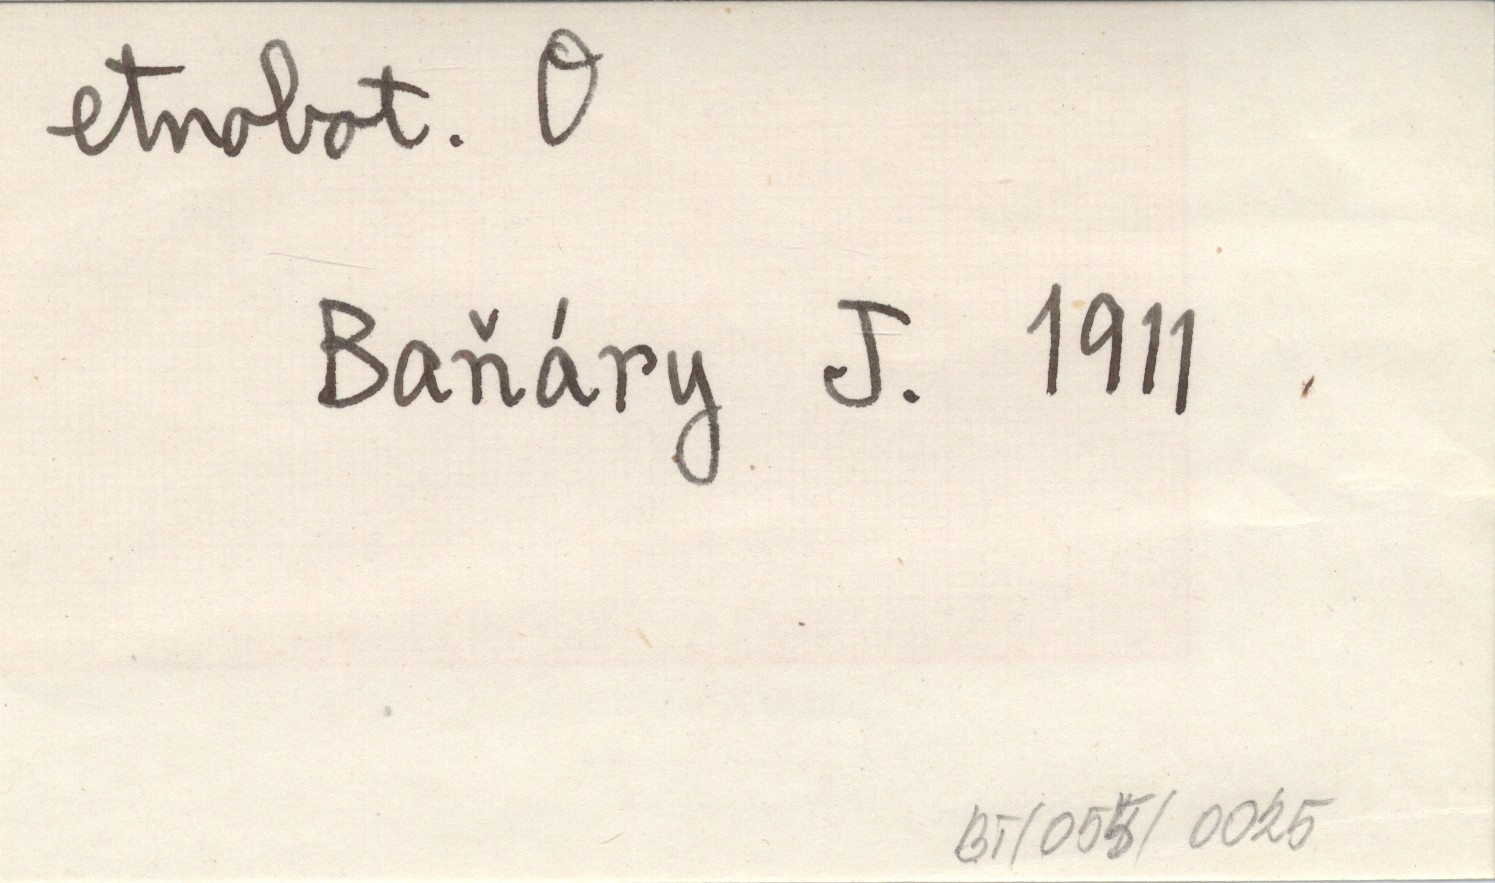 etnobot. O
Baňáry J. 1911
BT/055/0025